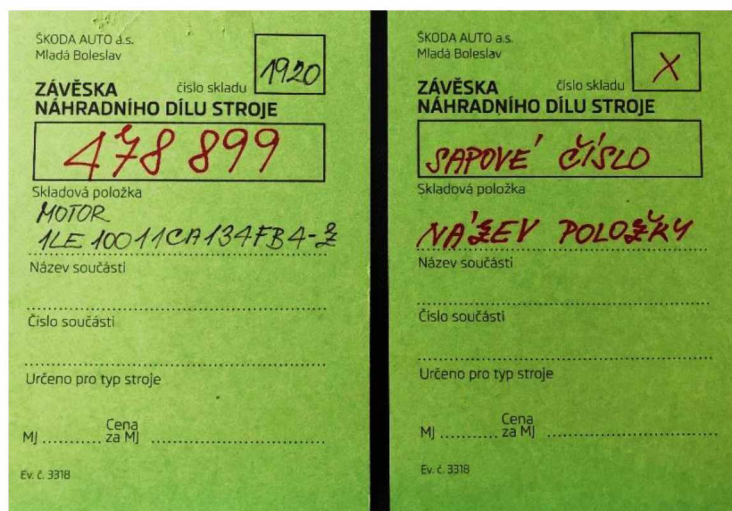 ŠKODA AUTO a.s.
Mladá Boleslav
1920
ZÁVĚSKA číslo skladu
NÁHRADNÍHO DÍLU STROJE
478 899
Skladová položka
MOTOR
1LE 10011CA134FB4-Z
Název součásti
Číslo součásti
Určeno pro typ stroje
MJ .......... Cena za MJ ..........
Ev. č. 3318
ŠKODA AUTO a.s.
Mladá Boleslav
X
ZÁVĚSKA číslo skladu
NÁHRADNÍHO DÍLU STROJE
SAPOVÉ ČÍSLO
Skladová položka
NÁZEV POLOŽKY
Název součásti
Číslo součásti
Určeno pro typ stroje
MJ .......... Cena za MJ ..........
Ev. č. 3318